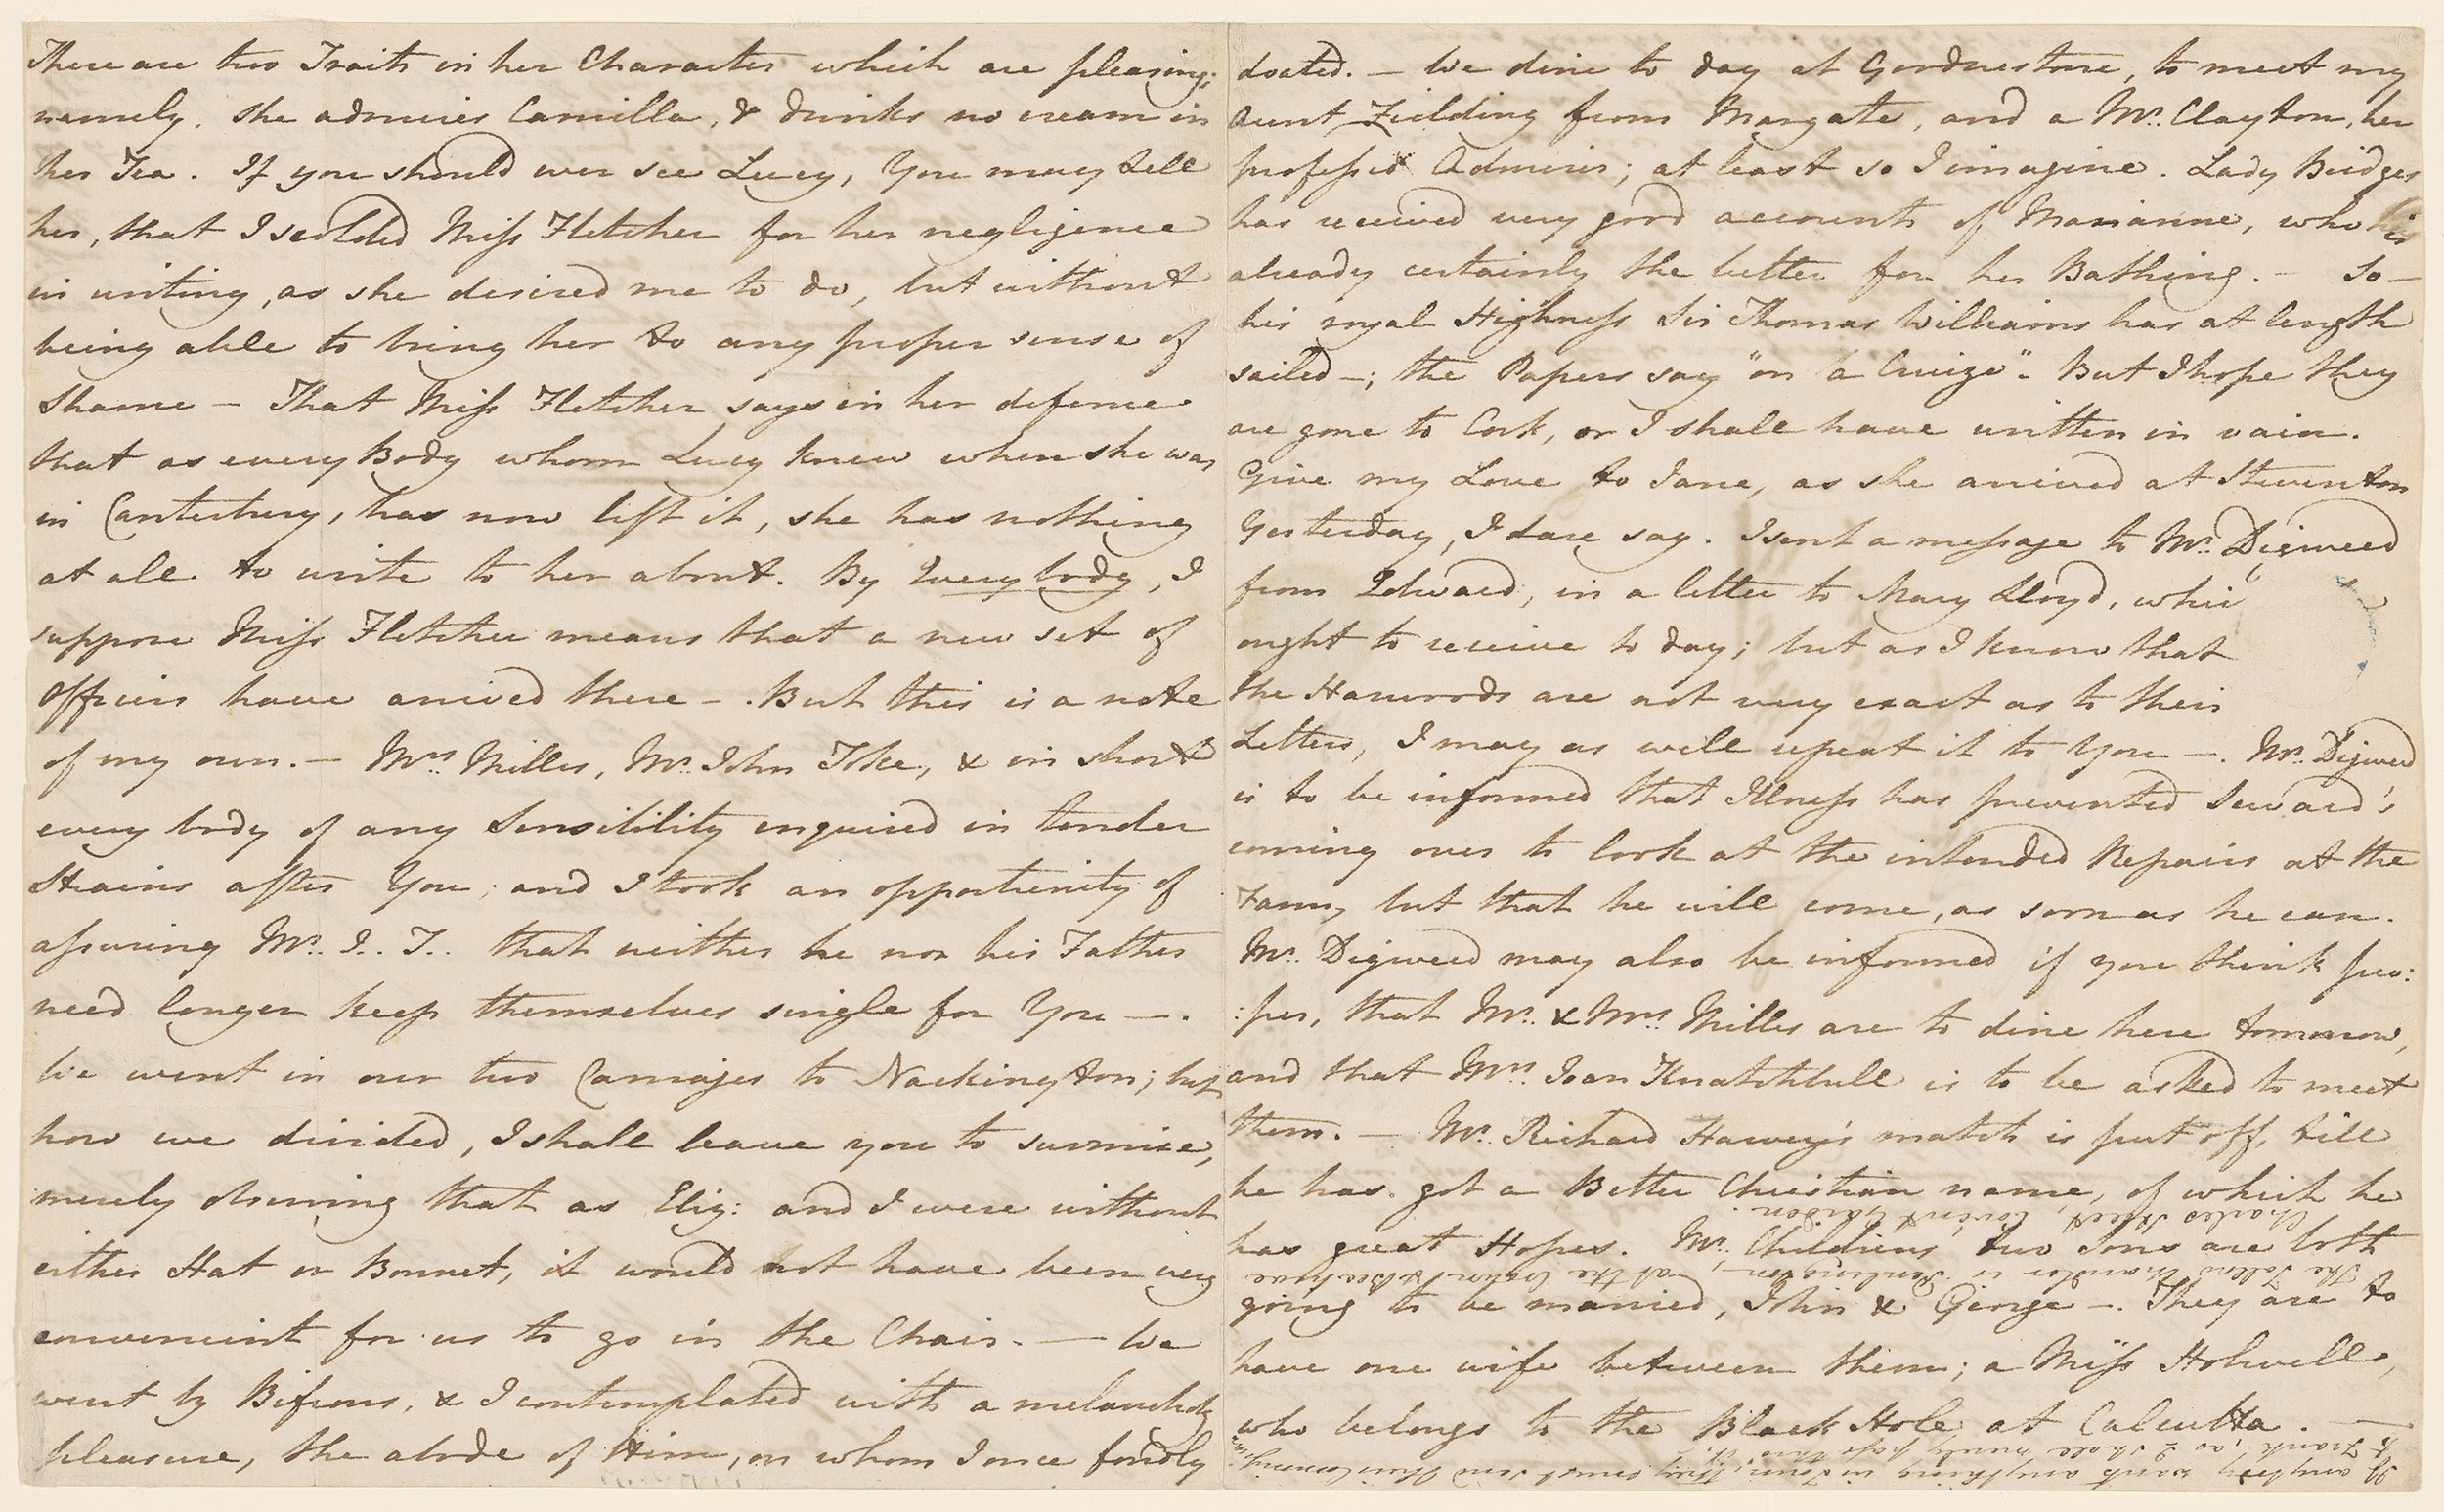 There are two Traits in her Character which are pleasing;
namely, she admires Camilla, & drinks no cream in
her Tea. If you should ever see Lucy, You may tell
her, that I scolded Miss Fletcher for her negligence
in writing, as she desired me to do, but without
being able to bring her to any proper sense of
Shame — That Miss Fletcher says in her defence
that as every Body whom Lucy knew when she was
in Canterbury, has now left it, she has nothing
at all to write to her about. By Everybody, I
suppose Miss Fletcher means that a new set of
Officers have arrived there —. But this is a note
of my own. — Mrs. Milles, Mr. John Toke, & in short
every body of any Sensibility enquired in tender
Strains after You; and I took an opportunity of
assuring Mr. J.. T.. that neither he nor his Father
need longer keep themselves single for You —.
We went in our two Carriages to Nackington; but
how we divided, I shall leave you to surmise,
merely observing that as Eliz: and I were without
either Hat or Bonnet, it would not have been very
convenient for us to go in the Chair. — We
went by Bifrons, & I contemplated with a melancholy
pleasure, the abode of Him, on whom I once fondly
doated. — We dine to day at Goodnestone, to meet my
Aunt Fielding from Margate, and a Mr. Clayton, her
professed Admirer; at least so I imagine. Lady Bridges
has received very good accounts of Marianne, who is
already certainly the better for her Bathing. — So —
his royal Highness Sir Thomas Williams has at length
sailed —; the Papers say "on a Cruize". But I hope they
are gone to Cork, or I shall have written in vain.
Give my Love to Jane, as she arrived at Steventon
Yesterday, I dare say. I sent a message to Mr. Digweed
from Edward, in a letter to Mary Lloyd, whi
ought to receive to day; but as I know that
the Harwoods are not very exact as to their
Letters, I may as well repeat it to You —. Mr. Digweed
is to be informed that Illness has prevented Seward's
coming over to look at the intended Repairs at the
Farm, but that he will come, as soon as he can.
Mr. Digweed may also be informed if you think pro:
:per, that Mr. & Mrs. Milles are to dine here tomorrow,
and that Mrs. Joan Knatchbull is to be asked to meet
them. — Mr. Richard Harvey's match is put off, till
he has got a Better Christian name, of which he
has great Hopes. Mr. Children's two Sons are both
going to be married, John & George —. They are to
have one wife between them; a Miss Holwell,
who belongs to the Black Hole at Calcutta. —
If anybody wants anything in Town, they must send their Commissions
to Frank, as I shall merely pass thro' it.
The Tallow Chandler is Penlington —, at the Crown & Beehive
Charles Street, Covent Garden.